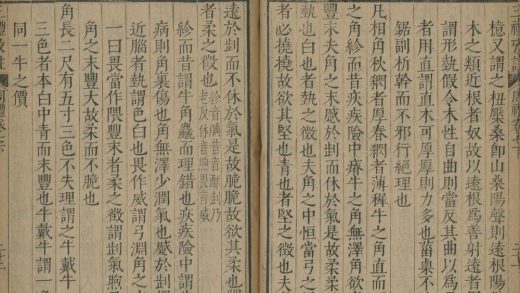 檍又謂之杻壓桑即山桑陽聲則遠根陽
木之類近根者奴故以遠根為善射遠者
謂形埶假令木性自曲則當反其曲以為
者用直謂直木可厚厚則力多也菑奧不
鋸副析幹而不邪行絕理也
凡相角秋閷者厚春閷者薄稺牛之角直而
之角紾而昔疢疾險中瘠牛之角無澤角欲
豐末夫角之末感於剒而休於氣是故柔柔
埶也白也者埶之徵也夫角之中恒當弓之
者必撓撓故欲其堅也青也者堅之徵也夫
遠於剒而不休於氣是故脆脆故欲其柔也豐
者柔之徵也
紾而昔謂牛角觕而理錯也疢疾險中謂
病則角裏傷也角無澤少潤氣也感於
近腦者埶謂色白也畏作威謂弓淵角之
一曰畏當作隈豐末者柔之徵謂剒氣煦
角之末豐大故柔而不脆也
角長二尺有五寸三色不失理謂之牛戴牛
三色者本白中青而末豐也牛戴牛謂一
同一牛之價